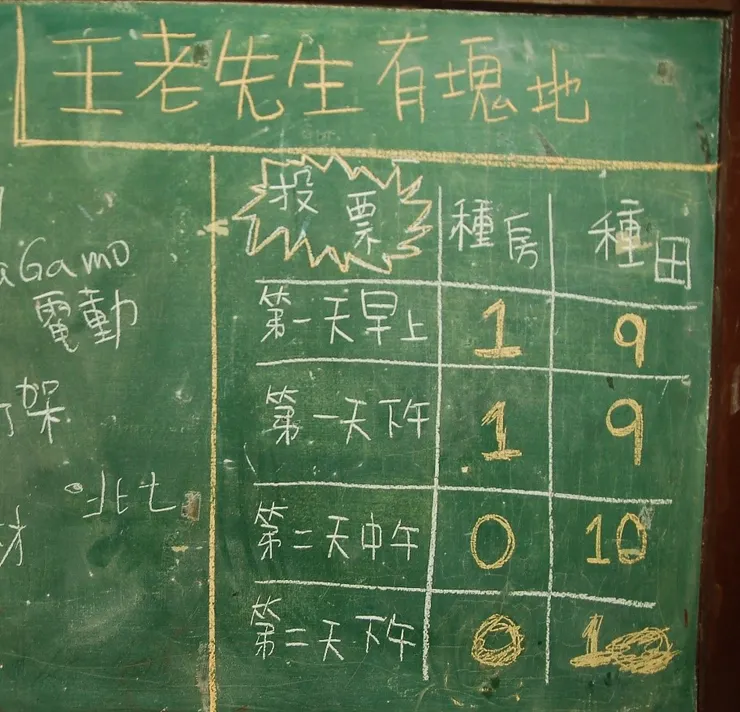 王老先生有塊地
投票 種房 種田
第一天早上 1 9
第一天下午 1 9
第二天中午 0 10
第二天下午 0 10
aGamo
電動
架
北七
材